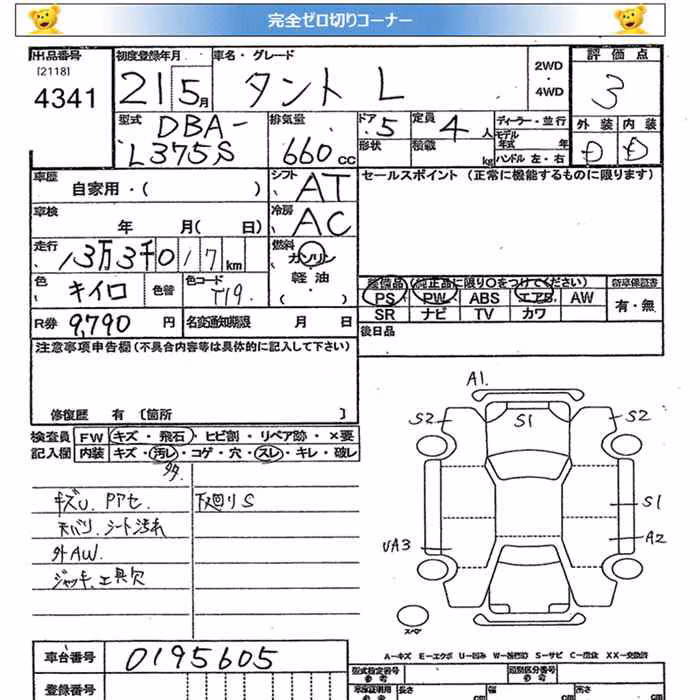 完全ゼロ切りコーナー
出品番号
[2118]
4341
初度登録年月
21 5月
車名・グレード
タント L
2WD
・
4WD
評価点
3
型式
DBA-
L375S
排気量
660 cc
ドア 5
形状
定員 4 人
積載 kg
ディーラー・並行
モデル
年式 年
ハンドル 左・右
外装 内装
D D
車歴
自家用・( )
シフト AT
セールスポイント (正常に機能するものに限ります)
車検
年 月( 日)
冷房 AC
走行
13万3千017 km
燃料
ガソリン
・
軽油
( )
色
キイロ
色替
色コード
T19.
装備品(純正品に限り○をつけてください)
新車保証書
PS PW ABS エアB AW
SR ナビ TV カワ
有・無
R券 9,790 円
名変通知期限 月 日
後日品
注意事項申告欄(不具合内容等は具体的に記入して下さい)
修復歴 有 〔箇所 〕
検査員
記入欄
FW キズ・飛石・ヒビ割・リペア跡・×要
内装 キズ・汚レ・コゲ・穴・スレ・キレ・破レ
多
キズU. Pアセ.
下廻りS
天バリ. シート汚れ
外AW.
ジャッキ. 工具欠
A1.
S2
S1
S2
S1
UA3
A2
スペア
A-キズ E-エクボ U-凹み W-補修跡 S-サビ C-腐食 XX-交換済
車台番号
0195605
登録番号
型式指定番号
参考
類別区分番号
参考
車庫証明用
参考
長さ cm
幅 cm
高さ cm